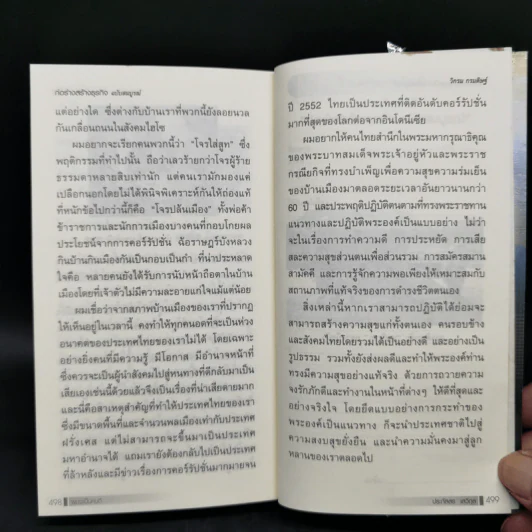 ก่อร่างสร้างธุรกิจ ฉบับสมบูรณ์
แต่อย่างใด ซึ่งต่างกับบ้านเราที่พวกนี้ยังลอยนวล
กันเกลื่อนถนนในสังคมไฮโซ
ผมอยากจะเรียกคนพวกนี้ว่า "โจรใส่สูท" ซึ่ง
พฤติกรรมที่ทำไปนั้น ถือว่าเลวร้ายกว่าโจรผู้ร้าย
ธรรมดาหลายสิบเท่านัก แต่คนเรามักมองแค่
เปลือกนอกโดยไม่ได้พินิจพิเคราะห์กันให้ถ่องแท้
ที่หนักข้อไปกว่านี้ก็คือ "โจรปล้นเมือง" ทั้งพ่อค้า
ข้าราชการและนักการเมืองบางคนที่กอบโกยผล
ประโยชน์จากการคอร์รัปชั่น ฉ้อราษฎร์บังหลวง
กินบ้านกินเมืองกันเป็นกอบเป็นกำ ที่น่าประหลาด
ใจคือ หลายคนยังได้รับการนับหน้าถือตาในบ้าน
เมืองโดยที่เจ้าตัวไม่มีความละอายแก่ใจแม้แต่น้อย
ผมเชื่อว่าจากสภาพบ้านเมืองของเราที่ปรากฏ
ให้เห็นอยู่ในเวลานี้ คงทำให้ทุกคนอดที่จะเป็นห่วง
อนาคตของประเทศไทยของเราไม่ได้ โดยเฉพาะ
อย่างยิ่งคนที่มีความรู้ มีโอกาส มีอำนาจหน้าที่
ซึ่งควรจะเป็นผู้นำสังคมไปสู่หนทางที่ดีกลับมาเป็น
เสียเองเช่นนี้ด้วยแล้วจึงเป็นเรื่องที่น่าเสียดายมาก
และนี่คือสาเหตุสำคัญที่ทำให้ประเทศไทยของเรา
ซึ่งมีขนาดพื้นที่และจำนวนพลเมืองเท่ากับประเทศ
ฝรั่งเศส แต่ไม่สามารถจะขึ้นมาเป็นประเทศ
มหาอำนาจได้ แถมเรายังต้องกลับไปเป็นประเทศ
ที่ล้าหลังและมีข่าวเรื่องการคอร์รัปชั่นมากมายจน
498
วิกรม กรมดิษฐ์
ปี 2552 ไทยเป็นประเทศที่ติดอันดับคอร์รัปชั่น
มากที่สุดของโลกต่อจากอินโดนีเซีย
ผมอยากให้คนไทยสำนึกในพระมหากรุณาธิคุณ
ของพระบาทสมเด็จพระเจ้าอยู่หัวและพระราช
กรณียกิจที่ทรงบำเพ็ญเพื่อความสุขความร่มเย็น
ของบ้านเมืองมาตลอดระยะเวลาอันยาวนานกว่า
60 ปี และประพฤติปฏิบัติตนตามที่ทรงพระราชทาน
แนวทางและปฏิบัติพระองค์เป็นแบบอย่าง ไม่ว่า
จะในเรื่องการทำความดี การประหยัด การเสีย
สละความสุขส่วนตนเพื่อส่วนรวม การสมัครสมาน
สามัคคี และการรู้จักความพอเพียงให้เหมาะสมกับ
สถานภาพที่แท้จริงของการดำรงชีวิตตนเอง
สิ่งเหล่านี้หากเราสามารถปฏิบัติได้ย่อมจะ
สามารถสร้างความสุขแก่ทั้งตนเอง คนรอบข้าง
และสังคมไทยโดยรวมได้เป็นอย่างดี และอย่างเป็น
รูปธรรม รวมทั้งยังส่งผลดีและทำให้พระองค์ท่าน
ทรงมีความสุขอย่างแท้จริง ด้วยการถวายความ
จงรักภักดีและทำงานในหน้าที่ต่างๆ ให้ดีที่สุดและ
อย่างจริงใจ โดยยึดแบบอย่างการกระทำของ
พระองค์เป็นแนวทาง ก็จะนำประเทศชาติไปสู่
ความสงบสุขยั่งยืน และนำความมั่นคงมาสู่ลูก
หลานของเราตลอดไป
499